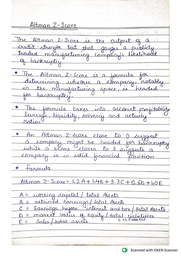 Altman Z-Score
The Altman Z-Score is the output of a
credit strength test that gauges a publicly
traded manufacturing company's likelihood
of bankruptcy
The Altman Z-Score is a formula for
determining whether a company, notably
in the manufacturing space is headed
for bankruptcy.
The formula takes into account profitability
leverage, liquidity, solvency and activity
ratios
An Altman Z-Score close to 0 suggest
a company might be headed for bankruptcy
while a score closer to 3 suggests a
company is in solid financial position
Formula
Altman Z-Score = 1.2A + 1.4B + 3.3C + 0.6D + 1.0E
A = working capital / total assets
B = retained earnings / total assets
C = Earnings before interest and tax / total assets
D = market value of equity / total liabilities
E = Sales / total assets
Scanned with OKEN Scanner